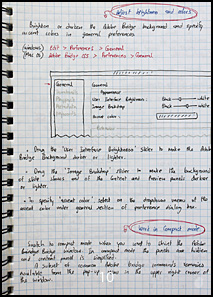 Adjust brightness and colors
Brighten or darken the Adobe Bridge background and specify
accent colors in general preferences.
(Windows) Edit > Preferences > General
(Mac OS) Adobe Bridge CS5 > Preferences > General.
General
General
Appearance
User Interface Brightness: Black White
Image Backdrop Black White
Accent Color:
• Drag the User Interface Brightness Slider to make the Adobe
Bridge Background darker or lighter.
• Drag the Image Backdrop slider to make the background
of slide shows and of the content and preview panels darker
or lighter.
• To specify accent color select on the dropdown menu of the
accent color under General section of preference dialog box.
Work in Compact mode
Switch to compact mode when you want to shrink the Adobe
Bridge window. In compact mode the panels are hidden
and content panel is simplified.
A subset of common Adobe Bridge commands remains
available from the pop-up menu in the upper right corner of
the window.
10